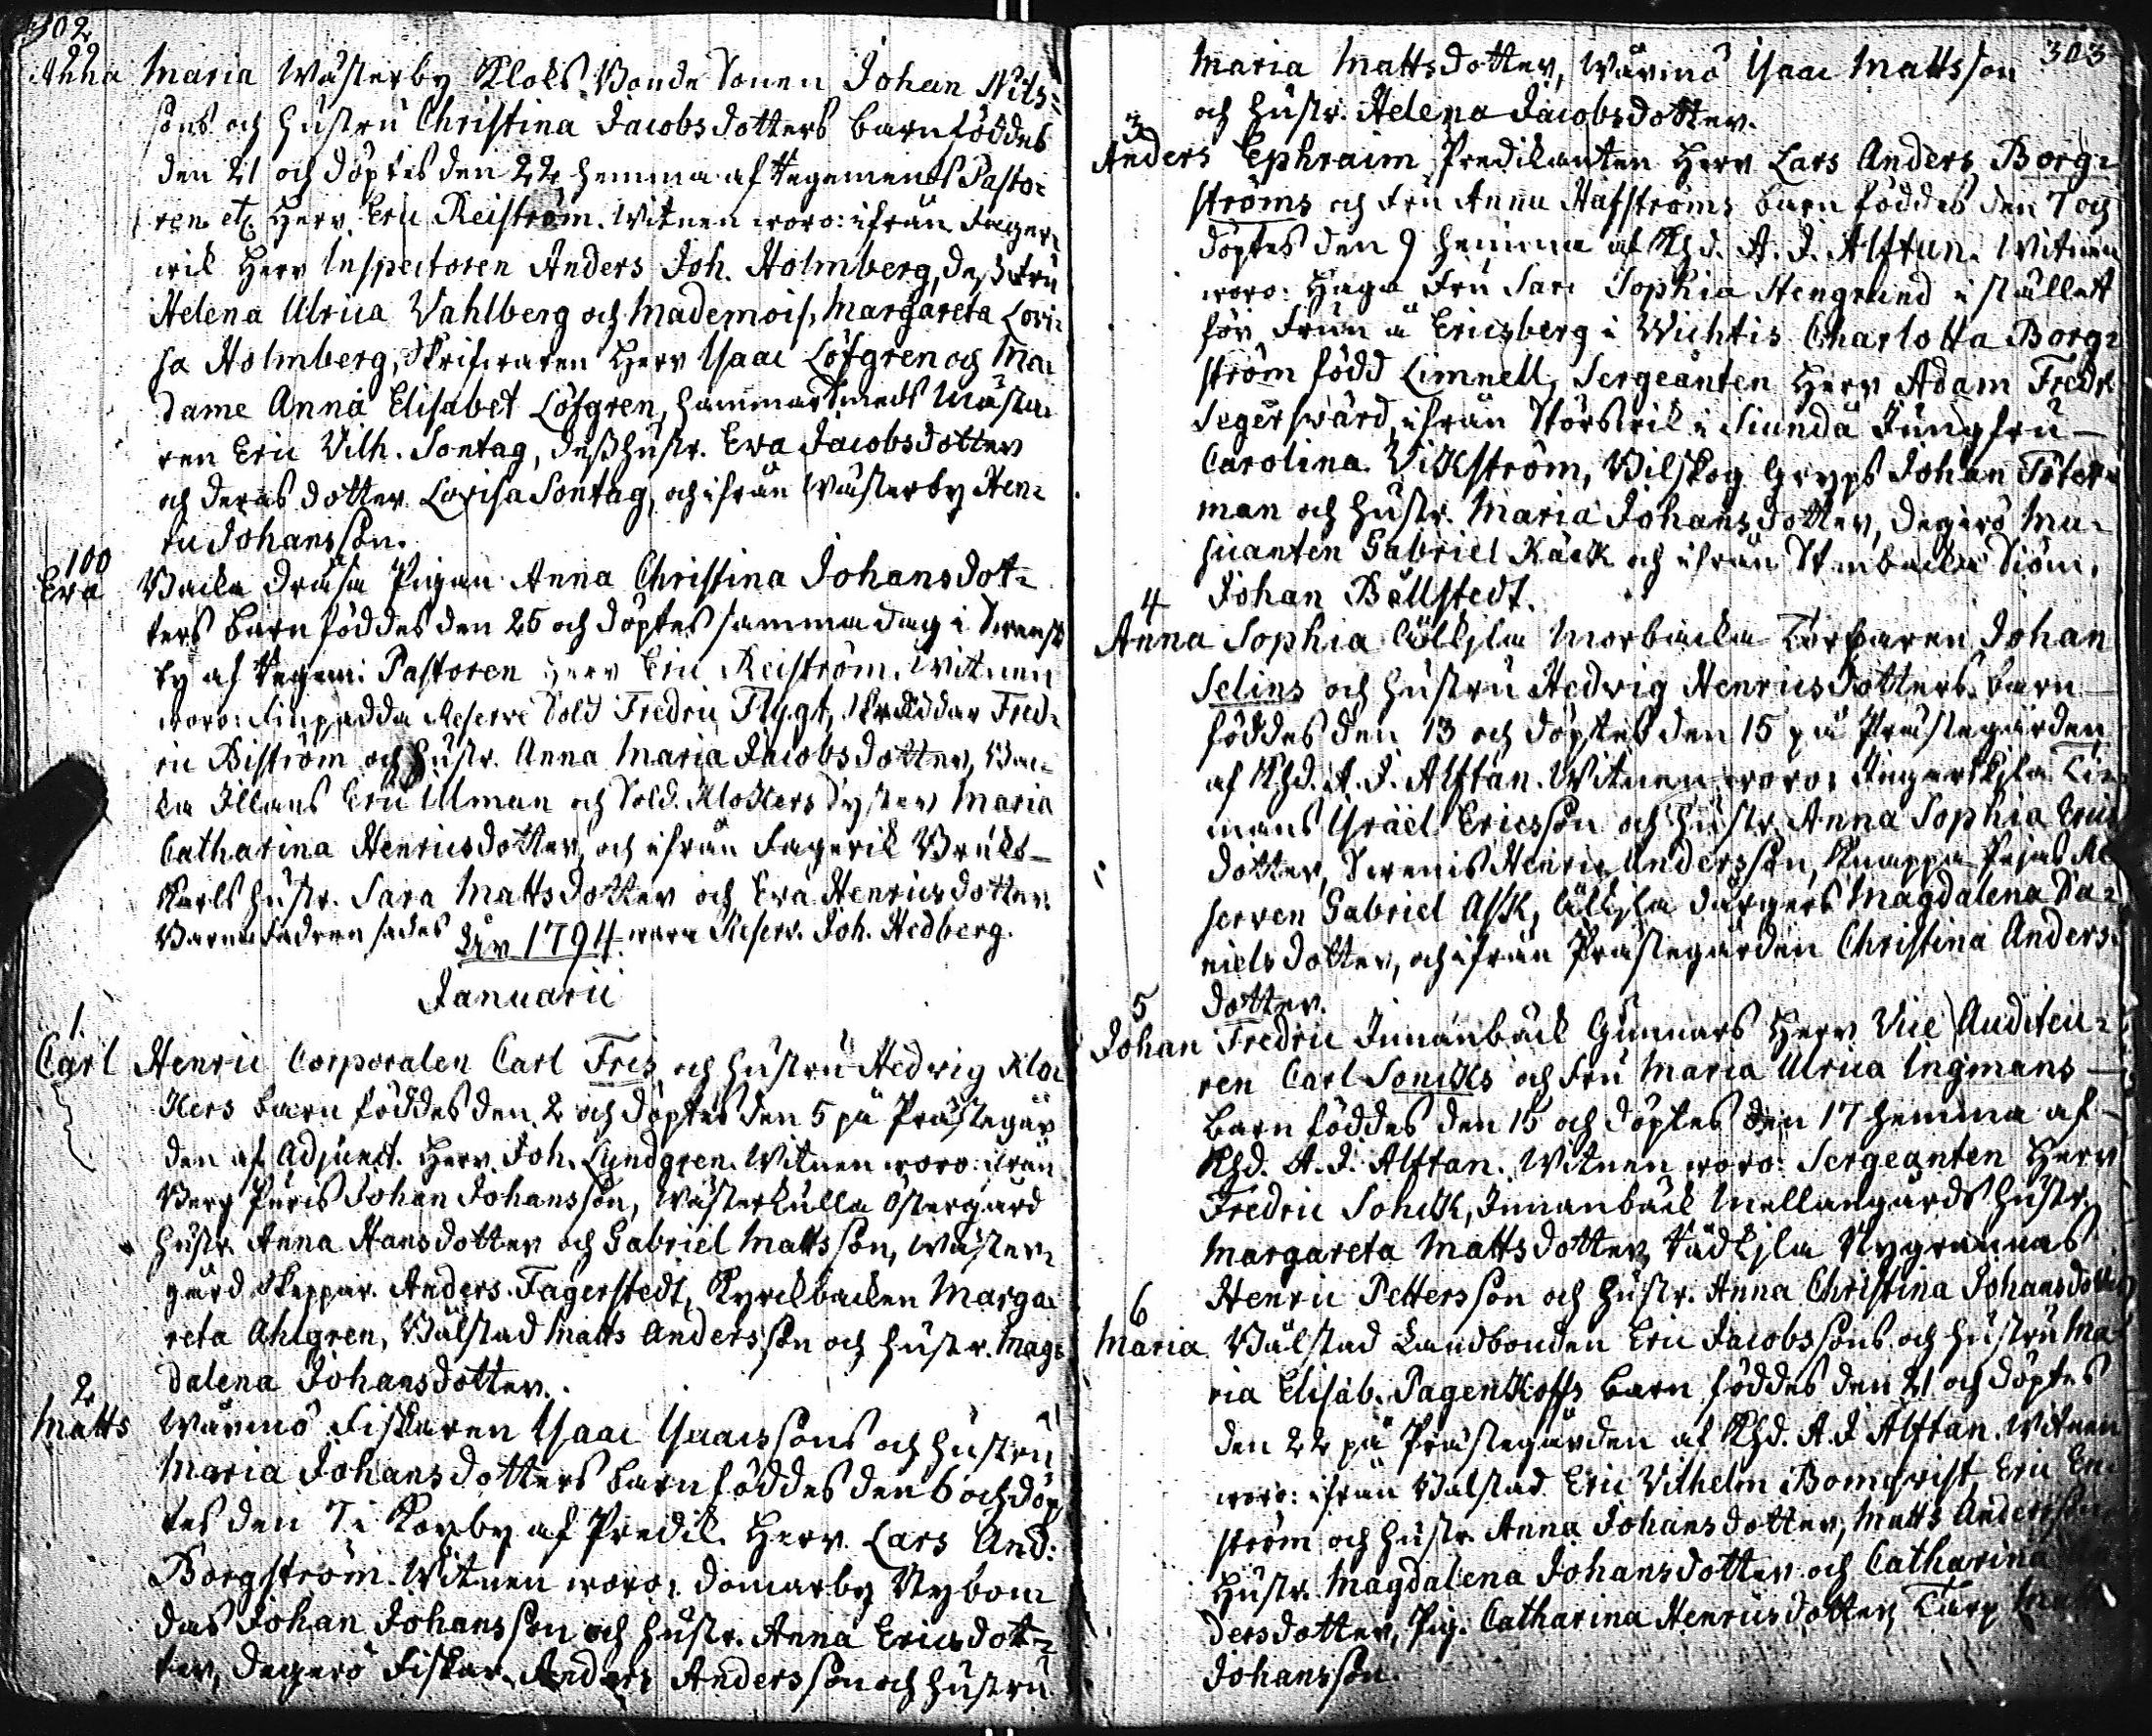 302
99
Anna Maria Wästerby Kloks Bonde Sonen Johan Nils-
sons och hustru Christina Jacobsdotters barn föddes
den 21 och döptes den 22 hemma af Regements Pasto-
ren etc. Herr Eric Reiström. Witnen woro: ifrån Fager-
wik Herr Inspectoren Anders Joh. Holmberg, dess Fru
Helena Ulrica Vahlberg och Mademois. Margareta Lovi-
sa Holmberg, Skrifvaren Herr Isaac Löfgren och Ma-
dame Anna Elisabet Löfgren, Hammarsmeds Mästa-
ren Eric Vilh. Sontag, dess hustr. Eva Jacobsdotter
och deras dotter Lovisa Sontag, och ifrån Wästerby Hen-
ric Johansson.
100
Eva Backa Pigan Anna Christina Johansdot-
ters barn föddes den 25 och döptes samma dag i Svensk
by af Regem: Pastoren Herr Eric Reiström. Witnen
woro: Finpadda Reserve Sold Fredric Flygt, Skräddar Fred-
ric Biström och hustr. Anna Maria Jacobsdotter, Bac-
ka Illans Eric Ulman och Sold. Klockers Syster Maria
Catharina Henricsdotter, och ifrån Fagervik Bruks-
Karls hustr. Sara Mattsdotter och Eva Henricsdotter.
Barnafadren sades wara Reserv. Joh. Hedberg.
År 1794.
Januarii
1.
Carl Henric Corporalen Carl Fris och hustru Hedvig Kloc
kers barn föddes den 2 och döptes den 5 på Prästegår
den af Adjunct. Herr Joh. Lundgren. Witnen woro: ifrån
Berg Puris Johan Johansson, Wästerkulla Östergård
hustr. Anna Hansdotter och Gabriel Mattsson, Wäster-
gård Skeppar. Anders Fagerstedt, Kyrckbacken Marga-
reta Ahlgren, Bålstad Matts Andersson och hustr. Mag-
dalena Johansdotter.
2
Matts Wårmö Fiskaren Isaac Isaacssons och hustru
Maria Johansdotters barn föddes den 6 och döp
tes den 7 i Korby af Predik. Herr Lars And:
Borgström. Witnen woro: Domarby Nybom
das Johan Johansson och hustr. Anna Ericsdot-
ter, Degerö Fiskar. Anders Andersson och hustru
303
Maria Mattsdotter, Wårmö Isaac Mattsson
och hustr. Helena Jacobsdotter.
3
Anders Ephraim Predikanten Herr Lars Anders Borg-
ströms och Fru Anna Hafströms barn föddes den 7 och
döptes den 9 hemma af Khd. A. J. Alftan. Witnen
woro: Haga Fru Sara Sophia Stengrund i stället
för Frun å Ericsberg i Wichtis Charlotta Borg-
ström född Limnell, Sergeanten Herr Adam Fredr
Segersvärd, ifrån Störsvik i Siundå Jungfru
Carolina Vikström, Bilskog Gryps Johan Töter-
man och hustr. Maria Johansdotter, Degerö Mu-
sicanten Gabriel Käck och ifrån Stenbacka Siöm.
Johan Bällstedt.
4
Anna Sophia Cällkjla Morbacka Torparen Johan
Selins och hustru Hedvig Henricsdotters barn
föddes den 13 och döptes den 15 på Prästegården
af Khd. A. J. Alftan. Witnen woro: Ingerskjla Ti-
mans Israel Ericsson och hustr. Anna Sophia Erics
dotter, Svenis Henric Andersson, Knappa Re
serven Gabriel Ask, Cällkjla Magdalena Da-
nielsdotter, och ifrån Prästegården Christina Anders-
dotter.
5
Johan Fredric Innanbäck Gunnars Herr Vice Auditeu-
ren Carl Soncks och Fru Maria Ulrica Ingmans
barn föddes den 15 och döptes den 17 hemma af
Khd. A. J. Alftan. Witnen woro: Sergeanten Herr
Fredric Sonck, Innanbäck Mellangårds hustr.
Margareta Mattsdotter, Rådkjla Nygrannas
Henric Pettersson och hustr. Anna Christina Johansdotter
6
Maria Bålstad Landbonden Eric Jacobssons och hustru Ma-
ria Elisab. Pagenkoffs barn föddes den 21 och döptes
den 22 på Prästegården af Khd. A. J. Alftan. Witnen
woro: ifrån Bålstad Eric Vilhelm Bomqvist, Eric En-
ström och hustr. Anna Johansdotter, Matts Andersson
hustr. Magdalena Johansdotter och Catharina An
dersdotter, Pig. Catharina Henricsdotter, Torp Matts
Johansson.